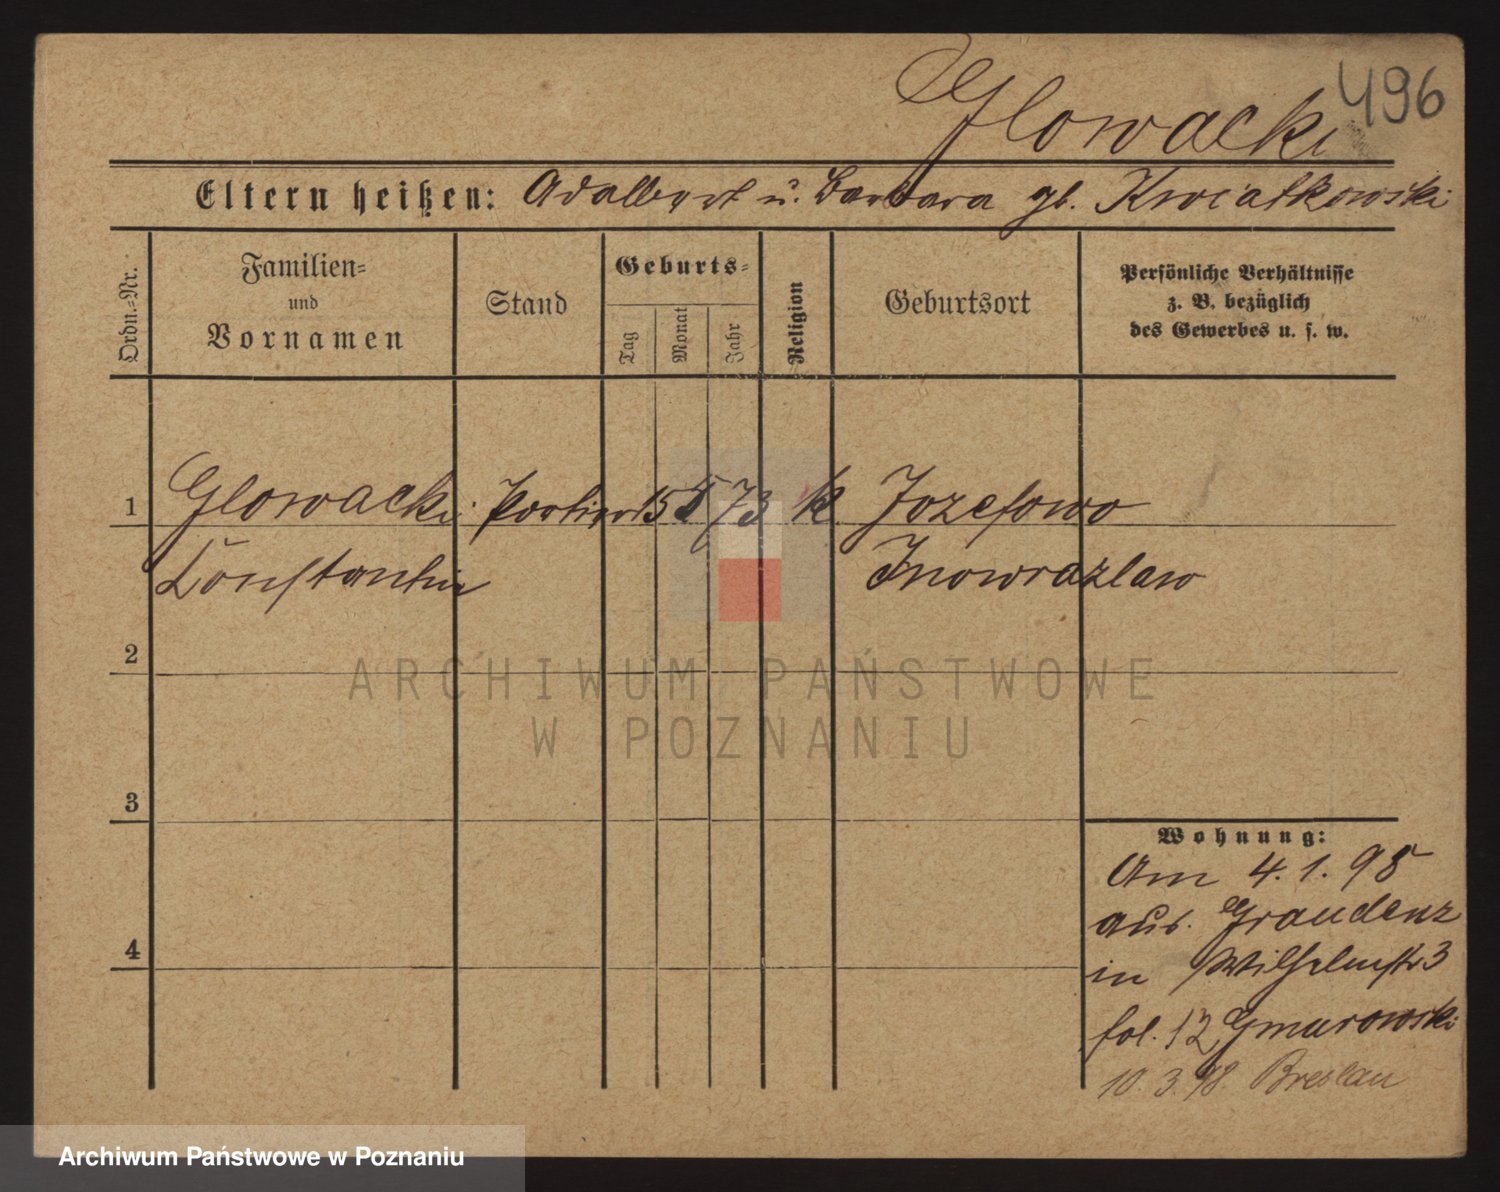 496
Glowacki
Eltern heißen: Adalbert u. Barbara gb. Kwiatkowski
Ordn.=Nr.
Familien=
und
Vornamen
Stand
Geburts=
Tag
Monat
Jahr
Religion
Geburtsort
Persönliche Verhältnisse
z. B. bezüglich
des Gewerbes u. s. w.
1 Glowacki Portier 15 73 k Jozefowo
Constantin Inowrazlaw
2
3
4
Wohnung:
Am 4. 1. 98
aus. Graudenz
in Wilhelmstr 3
fol. 12 Gmurowski
10. 3. 98. Breslau
ARCHIWUM PAŃSTWOWE
W POZNANIU
Archiwum Państwowe w Poznaniu